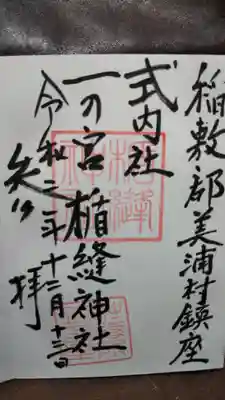 稲敷郡美浦村鎮座
式内社
一の宮 楯縫神社
令和二年十二月十三日
拝
楯縫
神社